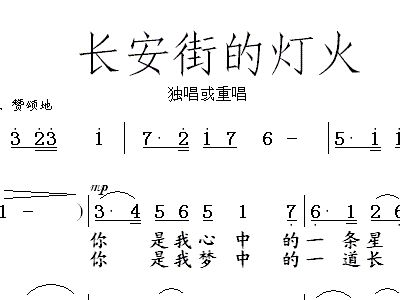 长安街的灯火
独唱或重唱
、赞颂地
3 23 1 | 7· 2 1 7 6 - | 5· 1 1
mp
1 - ) | 3· 4 5 6 5 1 7 | 6· 1 2 6
你 是我心中 的一 条星
你 是我梦中 的一 道长